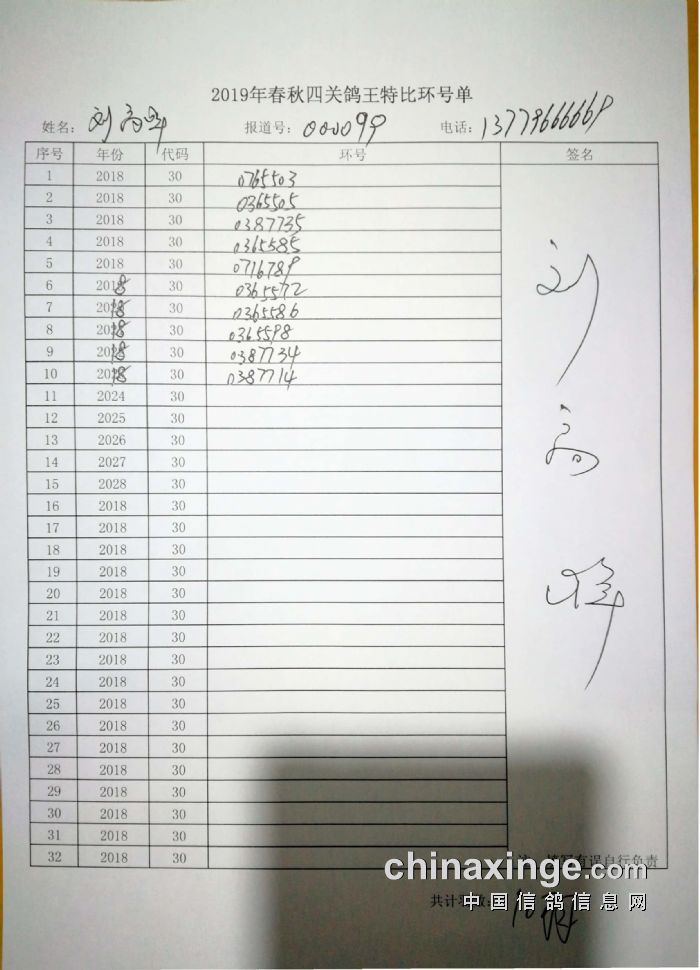 2019年春秋四关鸽王特比环号单
姓名: 刘 报道号: 000099 电话: 13779666669
序号 年份 代码 环号 签名
1 2018 30 0765503
2 2018 30 0365505
3 2018 30 0387735
4 2018 30 0365585
5 2018 30 0716789
6 2018 30 0365572
7 2018 30 0365586
8 2018 30 0365598
9 2018 30 0387734
10 2018 30 0387714
11 2024 30
12 2025 30
13 2026 30
14 2027 30
15 2028 30
16 2018 30
17 2018 30
18 2018 30
19 2018 30
20 2018 30
21 2018 30
22 2018 30
23 2018 30
24 2018 30
25 2018 30
26 2018 30
27 2018 30
28 2018 30
29 2018 30
30 2018 30
31 2018 30
32 2018 30
刘
有误自行负责
chinaxinge.com
共计 数:
中国信鸽信息网